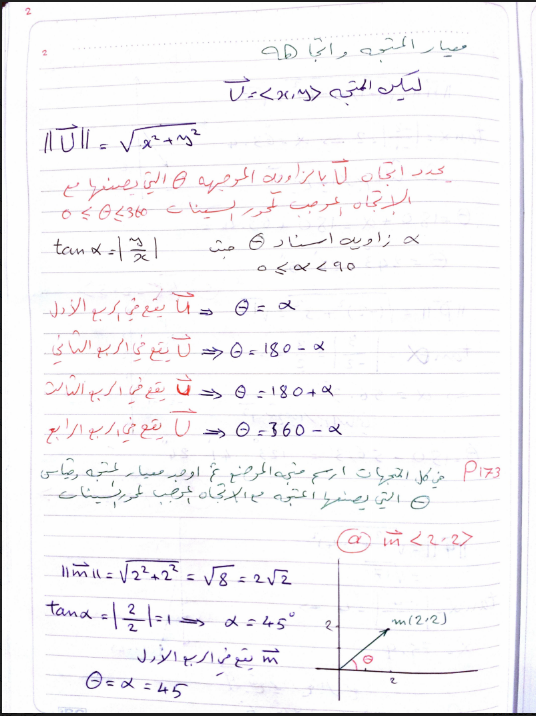 2
2
معيار المتجه واتجاهه
ليكن المتجه U⃗ = <x,y>
||U⃗|| = √(x²+y²)
يحدد اتجاه U⃗ بالزاوية الموجهه θ التي يصنعها مع
الاتجاه الموجب لمحور السينات 0 ≤ θ ≤ 360
α زاوية اسناد θ حيث tan α = |y/x|
0 ≤ α < 90
U⃗ يقع في الربع الأول ⇒ θ = α
U⃗ يقع في الربع الثاني ⇒ θ = 180 - α
U⃗ يقع في الربع الثالث ⇒ θ = 180 + α
U⃗ يقع في الربع الرابع ⇒ θ = 360 - α
P173 في كل المتجهات ارسم متجه الموضع ثم اوجد معيار المتجه وقياس
θ التي يصنعها المتجه مع الاتجاه الموجب لمحور السينات
ⓐ m⃗ <2,2>
||m⃗|| = √(2²+2²) = √8 = 2√2
tan α = |2/2| = 1 ⇒ α = 45°
m⃗ يقع في الربع الأول
θ = α = 45
m(2,2)
2
θ
2